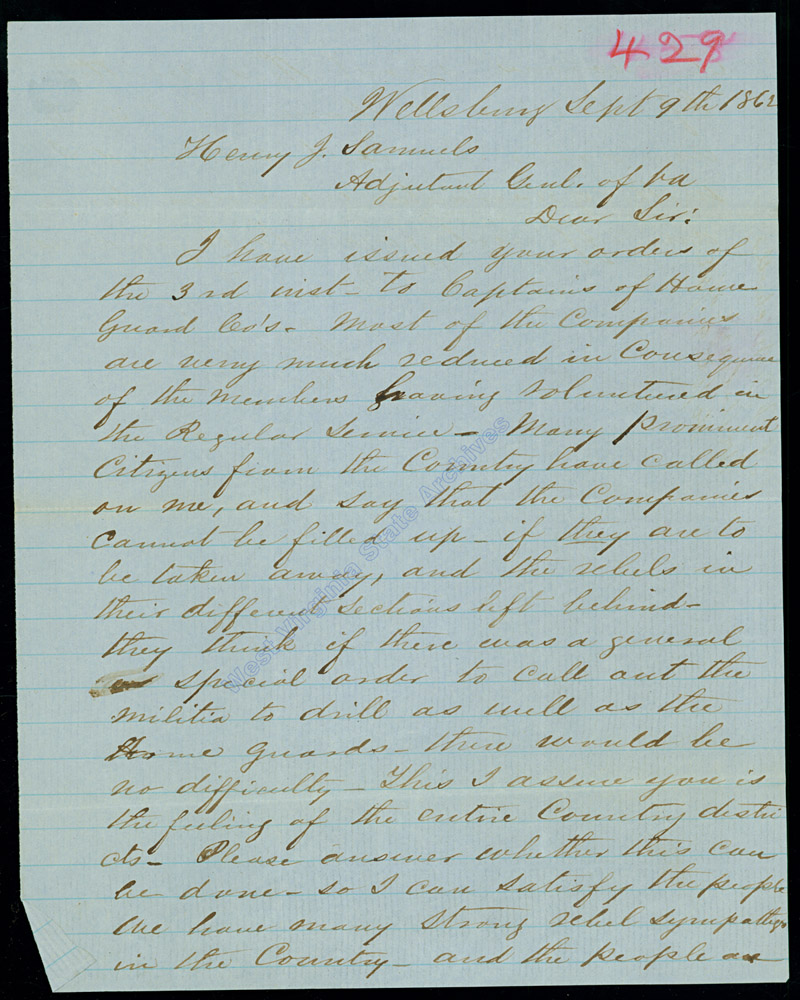 429
Wellsburg Sept 9th 1862
Henry J. Samuels
Adjutant Genl. of Va
Dear Sir:
I have issued your orders of
the 3rd inst - to Captains of Home
Guard Co's - Most of the Companies
are very much reduced in Consequence
of the Members having Volunteered in
the Regular Service - Many prominent
Citizens from the Country have called
on me, and say that the Companies
Cannot be filled up - if they are to
be taken away, and the rebels in
their different sections left behind -
they think if there was a general
or special order to call out the
militia to drill as well as the
Home guards - there would be
no difficulty - This I assure you is
the feeling of the entire Country distri
cts - Please answer whether this can
be done - so I can satisfy the people
We have many strong rebel sympathys
in the Country - and the people are
West Virginia State Archives